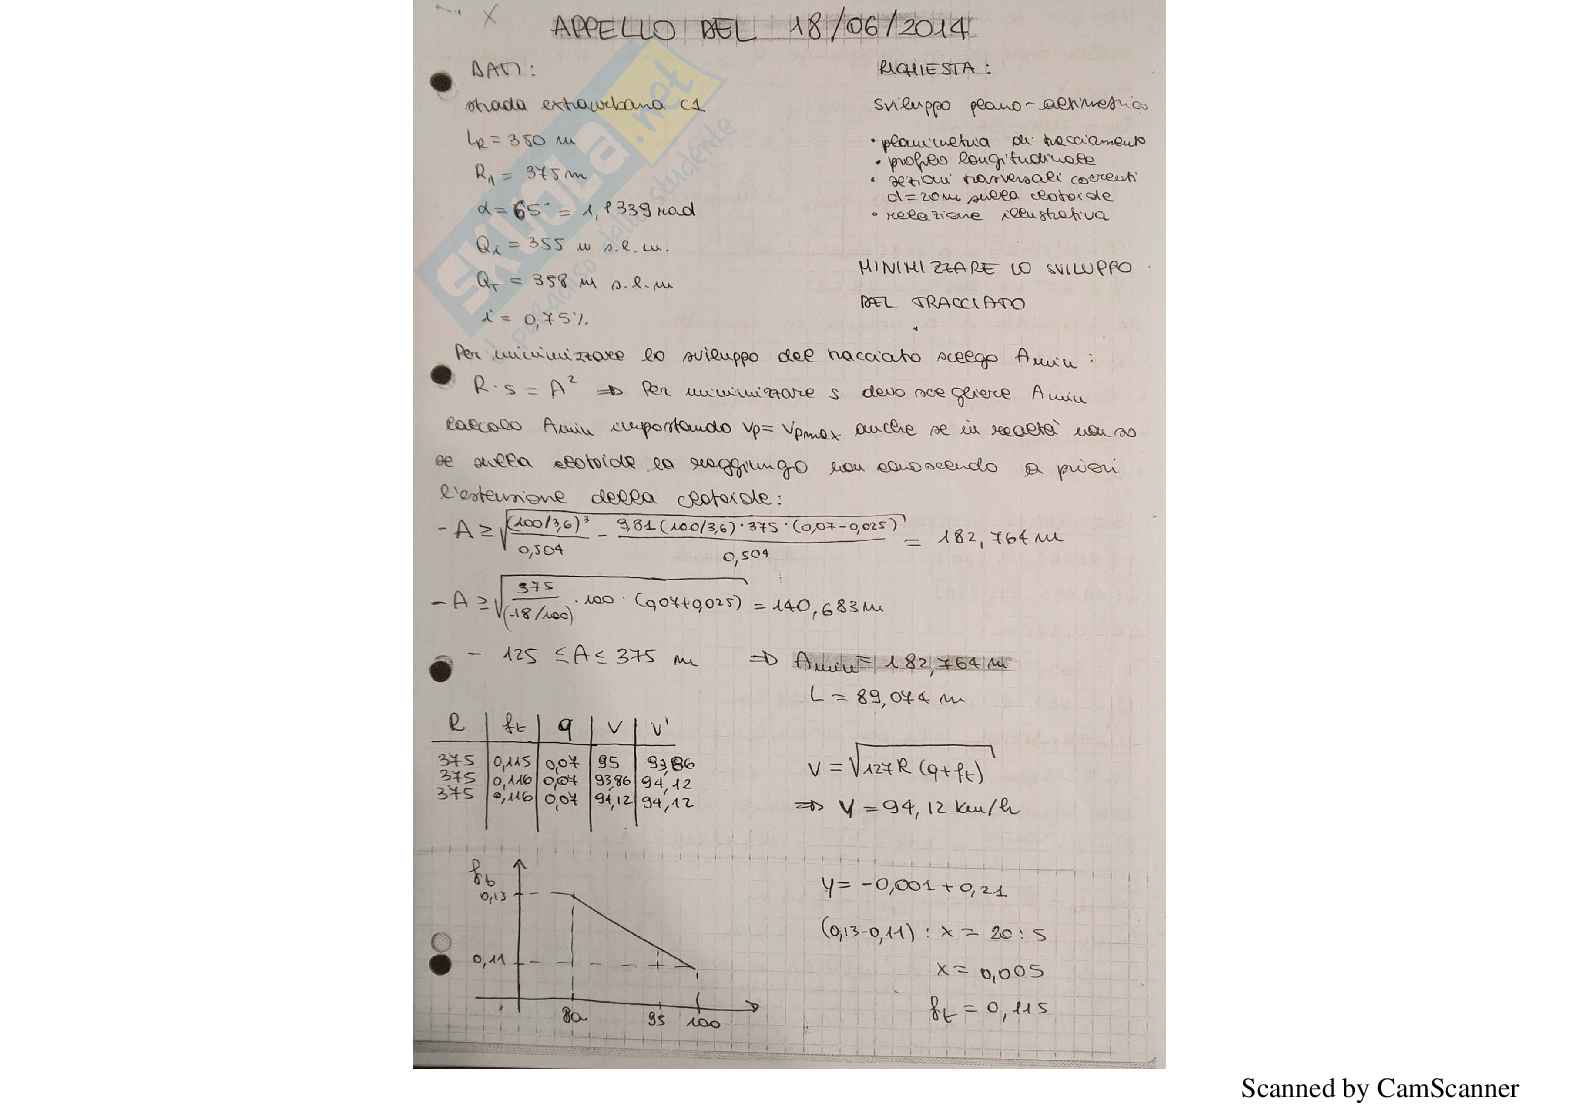 APPELLO DEL 18/06/2014
DATI:
strada extraurbana C1
LR = 350 m
R1 = 375 m
α = 65° = 1,1339 rad
Qi = 355 m s.l.m.
Qr = 358 m s.l.m
i = 0,75%
RICHIESTA:
sviluppo plano-altimetrico
• planimetria di tracciamento
• profilo longitudinale
• sezioni trasversali correnti
d=20m sulla clotoide
• relazione illustrativa
MINIMIZZARE LO SVILUPPO
DEL TRACCIATO
Per minimizzare lo sviluppo del tracciato scelgo Amin :
R·s = A² ⇒ Per minimizzare s devo scegliere Amin
calcolo Amin impostando Vp = Vpmax anche se in realtà non so
se sulla clotoide la raggiungo non conoscendo a priori
l'estensione della clotoide:
- A ≥ √((100/3,6)³/0,504 - 9,81(100/3,6)·375·(0,07-0,025)/0,504) = 182,764 m
- A ≥ √(375/(18/100) · 100 · (0,07+0,025)) = 140,683 m
- 125 ≤ A ≤ 375 m ⇒ Amin = 182,764 m
L = 89,074 m
R | ft | q | V | V'
375 | 0,115 | 0,07 | 95 | 93,86
375 | 0,116 | 0,07 | 93,86 | 94,12
375 | 0,116 | 0,07 | 94,12 | 94,12
V = √127R (q+ft)
⇒ V = 94,12 km/h
ft
0,13
0,11
80 95 100
y = -0,001 + 0,21
(0,13-0,11) : x = 20 : 5
x = 0,005
ft = 0,115
SKUOLA.net
Scanned by CamScanner